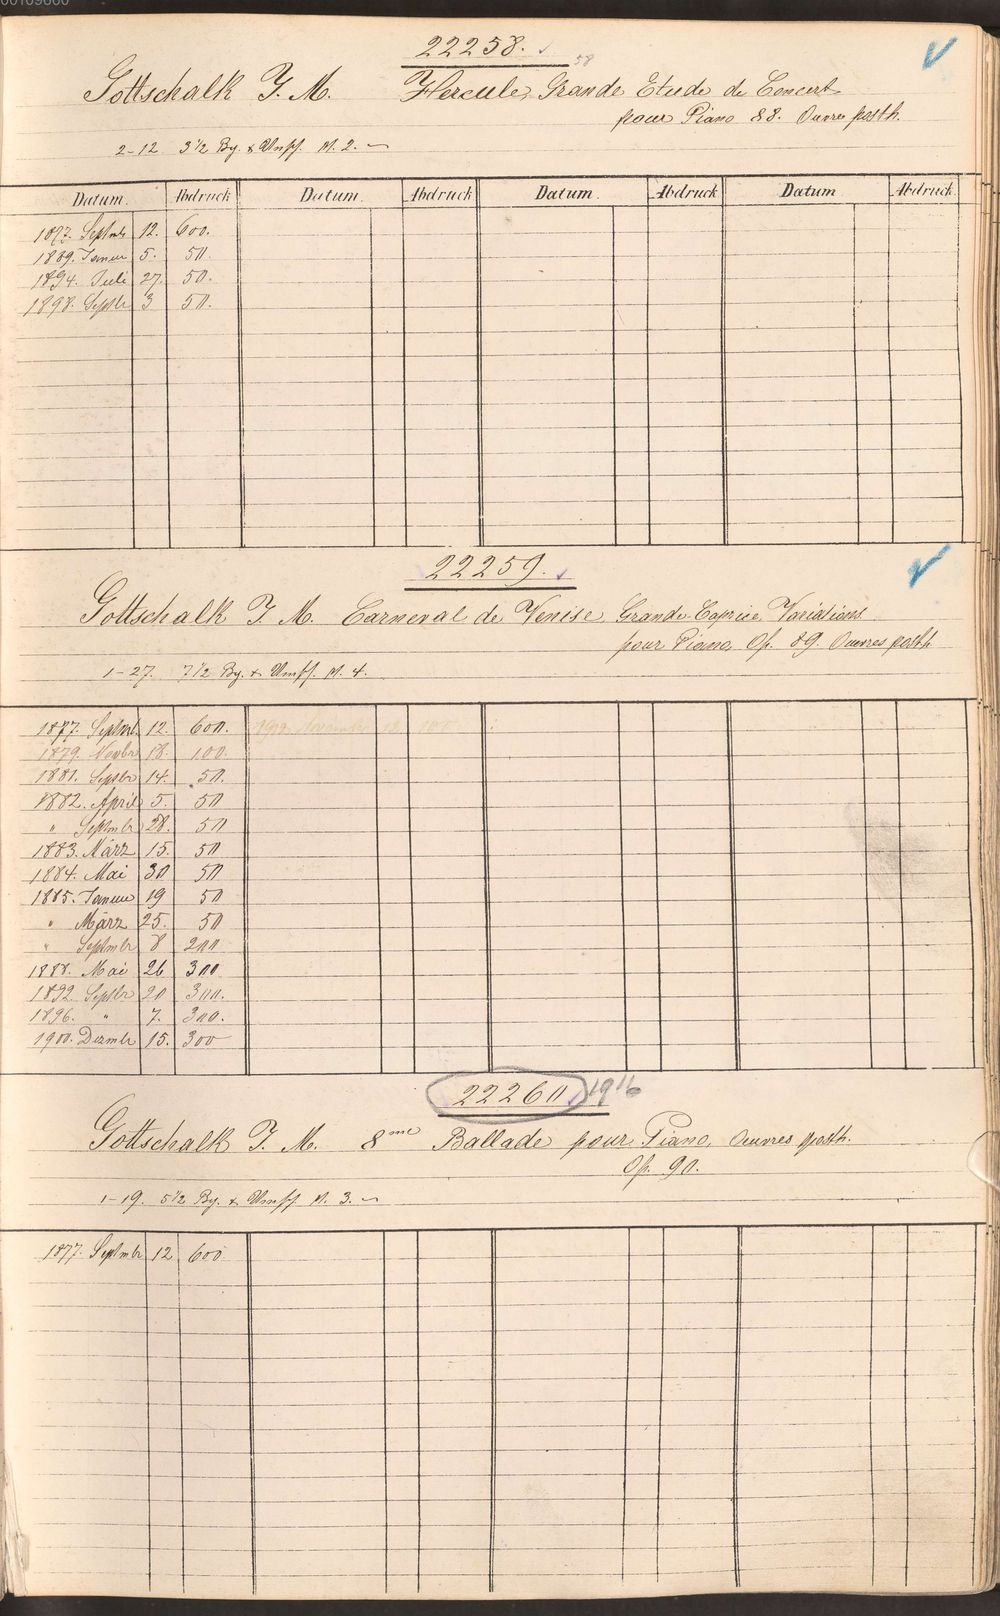 00109660
22258.
58
Gottschalk J. M. Hercule, Grande Etude de Concert
pour Piano 88. Ouvres posth.
2-12 3½ Bg. & Umschl. M. 2. -
Datum. Abdruck Datum. Abdruck Datum. Abdruck Datum Abdruck
1877. Septmb 12. 600.
1889. Januar 5. 50.
1894. Juli 27. 50.
1898. Septbr 3 50.
22259.
Gottschalk J. M. Carneval de Venise, Grande Caprice Variations
pour Piano, Op. 89. Ouvres posth
1-27. 7½ Bg. & Umschl. M. 4.
1877. Septmb. 12. 600. 1912. November 18 100
1879. Novbr 18. 100.
1881. Septbr 14. 50.
1882. April 5. 50
" Septmbr 28. 50
1883. März 15. 50
1884. Mai 30 50
1885. Januar 19 50
" März 25. 50
" Septmbr 8 200
1888. Mai 26 300
1892 Septbr 20 300.
1896. " 7. 300.
1900. Dezmbr 15. 300
22260 1916
Gottschalk J. M. 8me Ballade pour Piano, Oeuvres posth.
Op. 90.
1-19. 5½ Bg. & Umschl. M. 3. -
1877. Septmbr 12 600